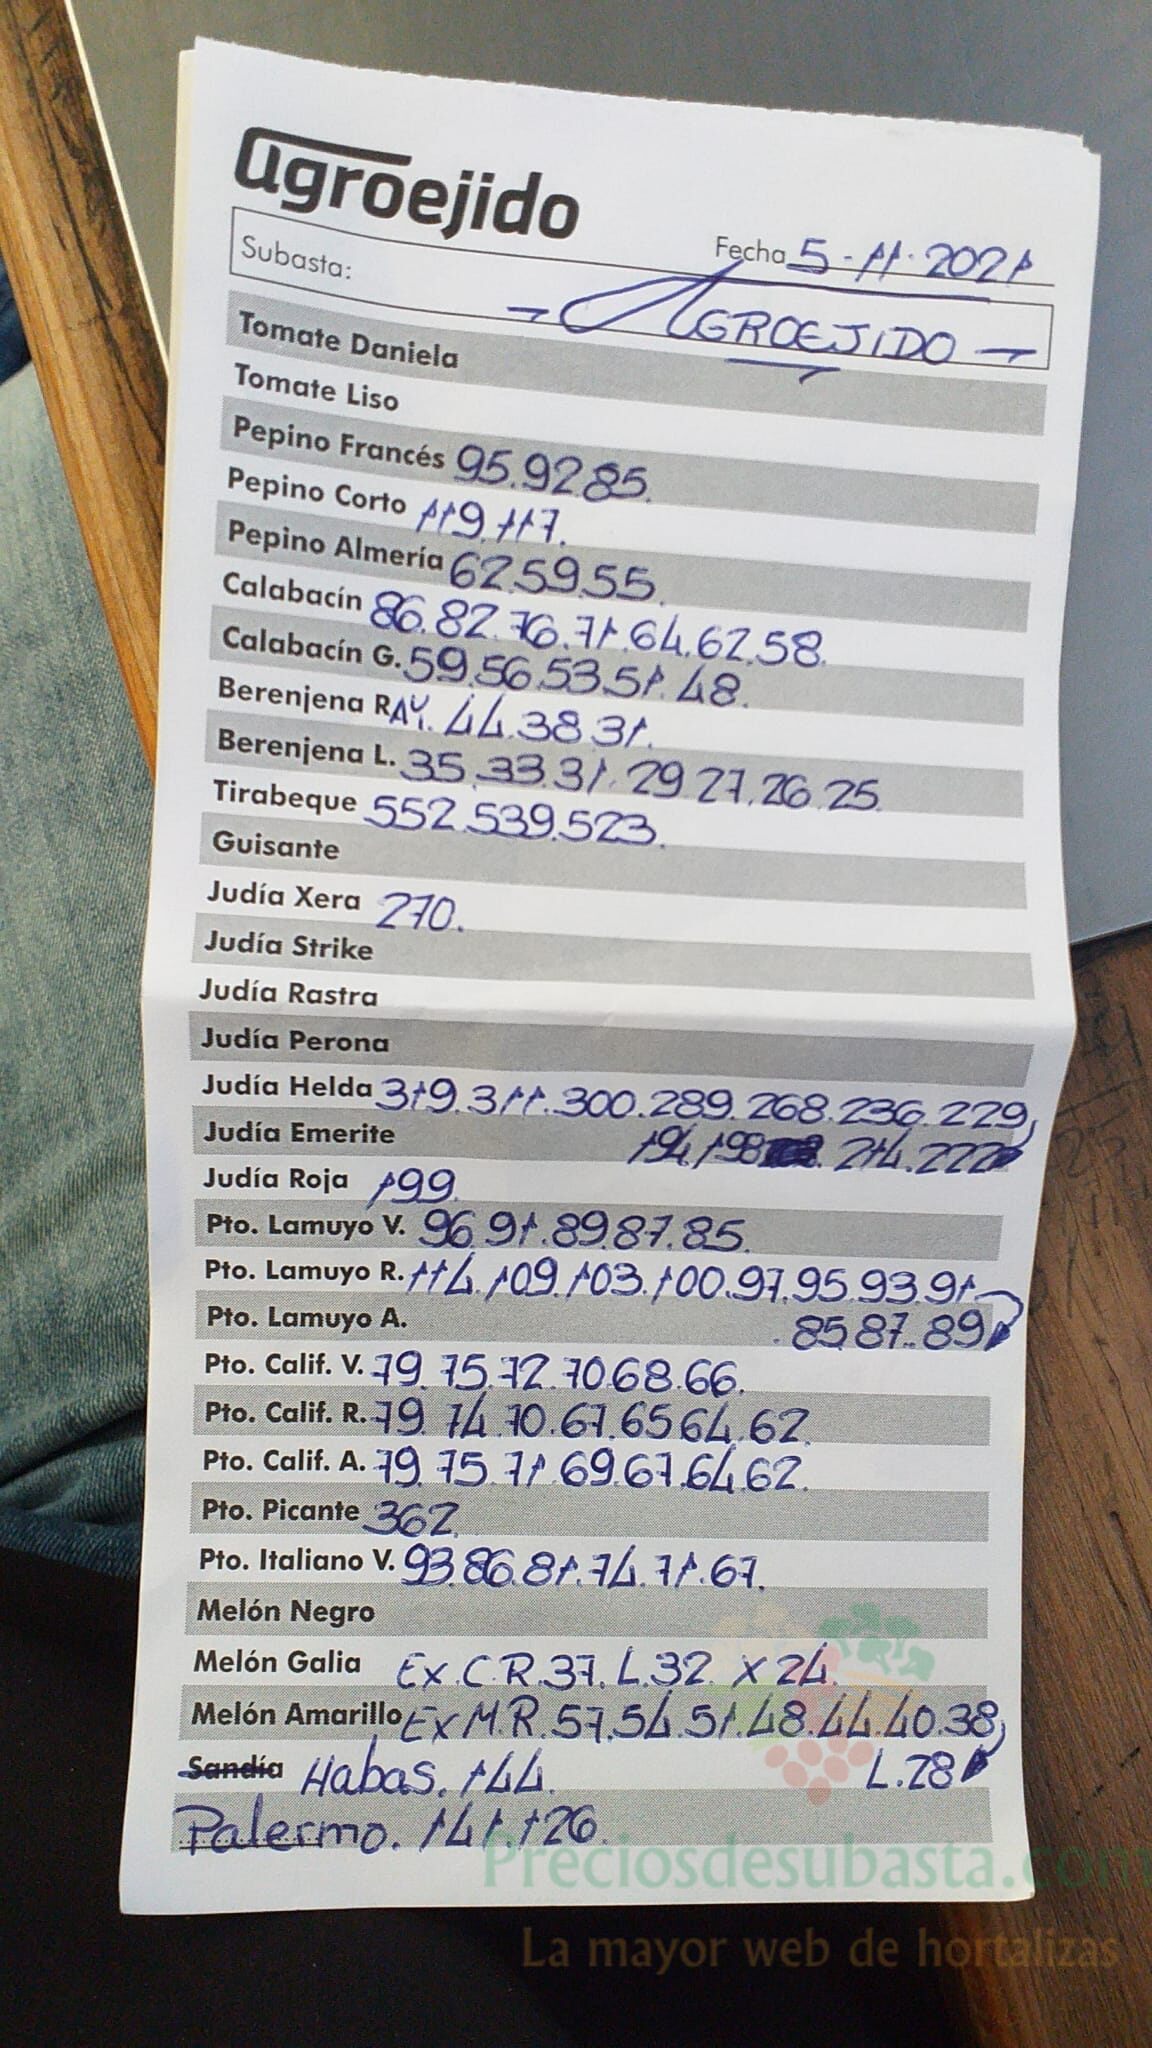 agroejido
Fecha 5-11-2021
Subasta: AGROEJIDO
Tomate Daniela
Tomate Liso
Pepino Francés 95.92.85.
Pepino Corto 119.117.
Pepino Almería 62.59.55.
Calabacín 86.82.76.71.64.62.58.
Calabacín G. 59.56.53.51.48.
Berenjena RAY. 44.38.31.
Berenjena L. 35.33.31.29.27.26.25.
Tirabeque 552.539.523.
Guisante
Judía Xera 270.
Judía Strike
Judía Rastra
Judía Perona
Judía Helda 319.311.300.289.268.236.229
Judía Emerite 194.198. 214.222
Judía Roja 199
Pto. Lamuyo V. 96.91.89.87.85.
Pto. Lamuyo R. 114.109.103.100.97.95.93.91
Pto. Lamuyo A. .85.87.89
Pto. Calif. V. 79.75.72.70.68.66.
Pto. Calif. R. 79.74.70.67.65.64.62.
Pto. Calif. A. 79.75.71.69.67.64.62.
Pto. Picante 362
Pto. Italiano V. 93.86.81.74.71.67.
Melón Negro
Melón Galia Ex.C.R.37.L.32. X 24.
Melón Amarillo Ex M.R.57.54.51.48.44.40.38
Sandía Habas. 144. L.28
Palermo. 141.126.
Preciosdesubasta.com
La mayor web de hortalizas